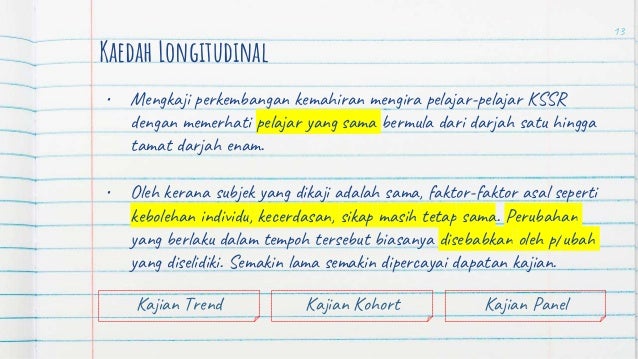 13
Kaedah Longitudinal
• Mengkaji perkembangan kemahiran mengira pelajar-pelajar KSSR
dengan memerhati pelajar yang sama bermula dari darjah satu hingga
tamat darjah enam.
• Oleh kerana subjek yang dikaji adalah sama, faktor-faktor asal seperti
kebolehan individu, kecerdasan, sikap masih tetap sama. Perubahan
yang berlaku dalam tempoh tersebut biasanya disebabkan oleh p/ubah
yang diselidiki. Semakin lama semakin dipercayai dapatan kajian.
Kajian Trend Kajian Kohort Kajian Panel